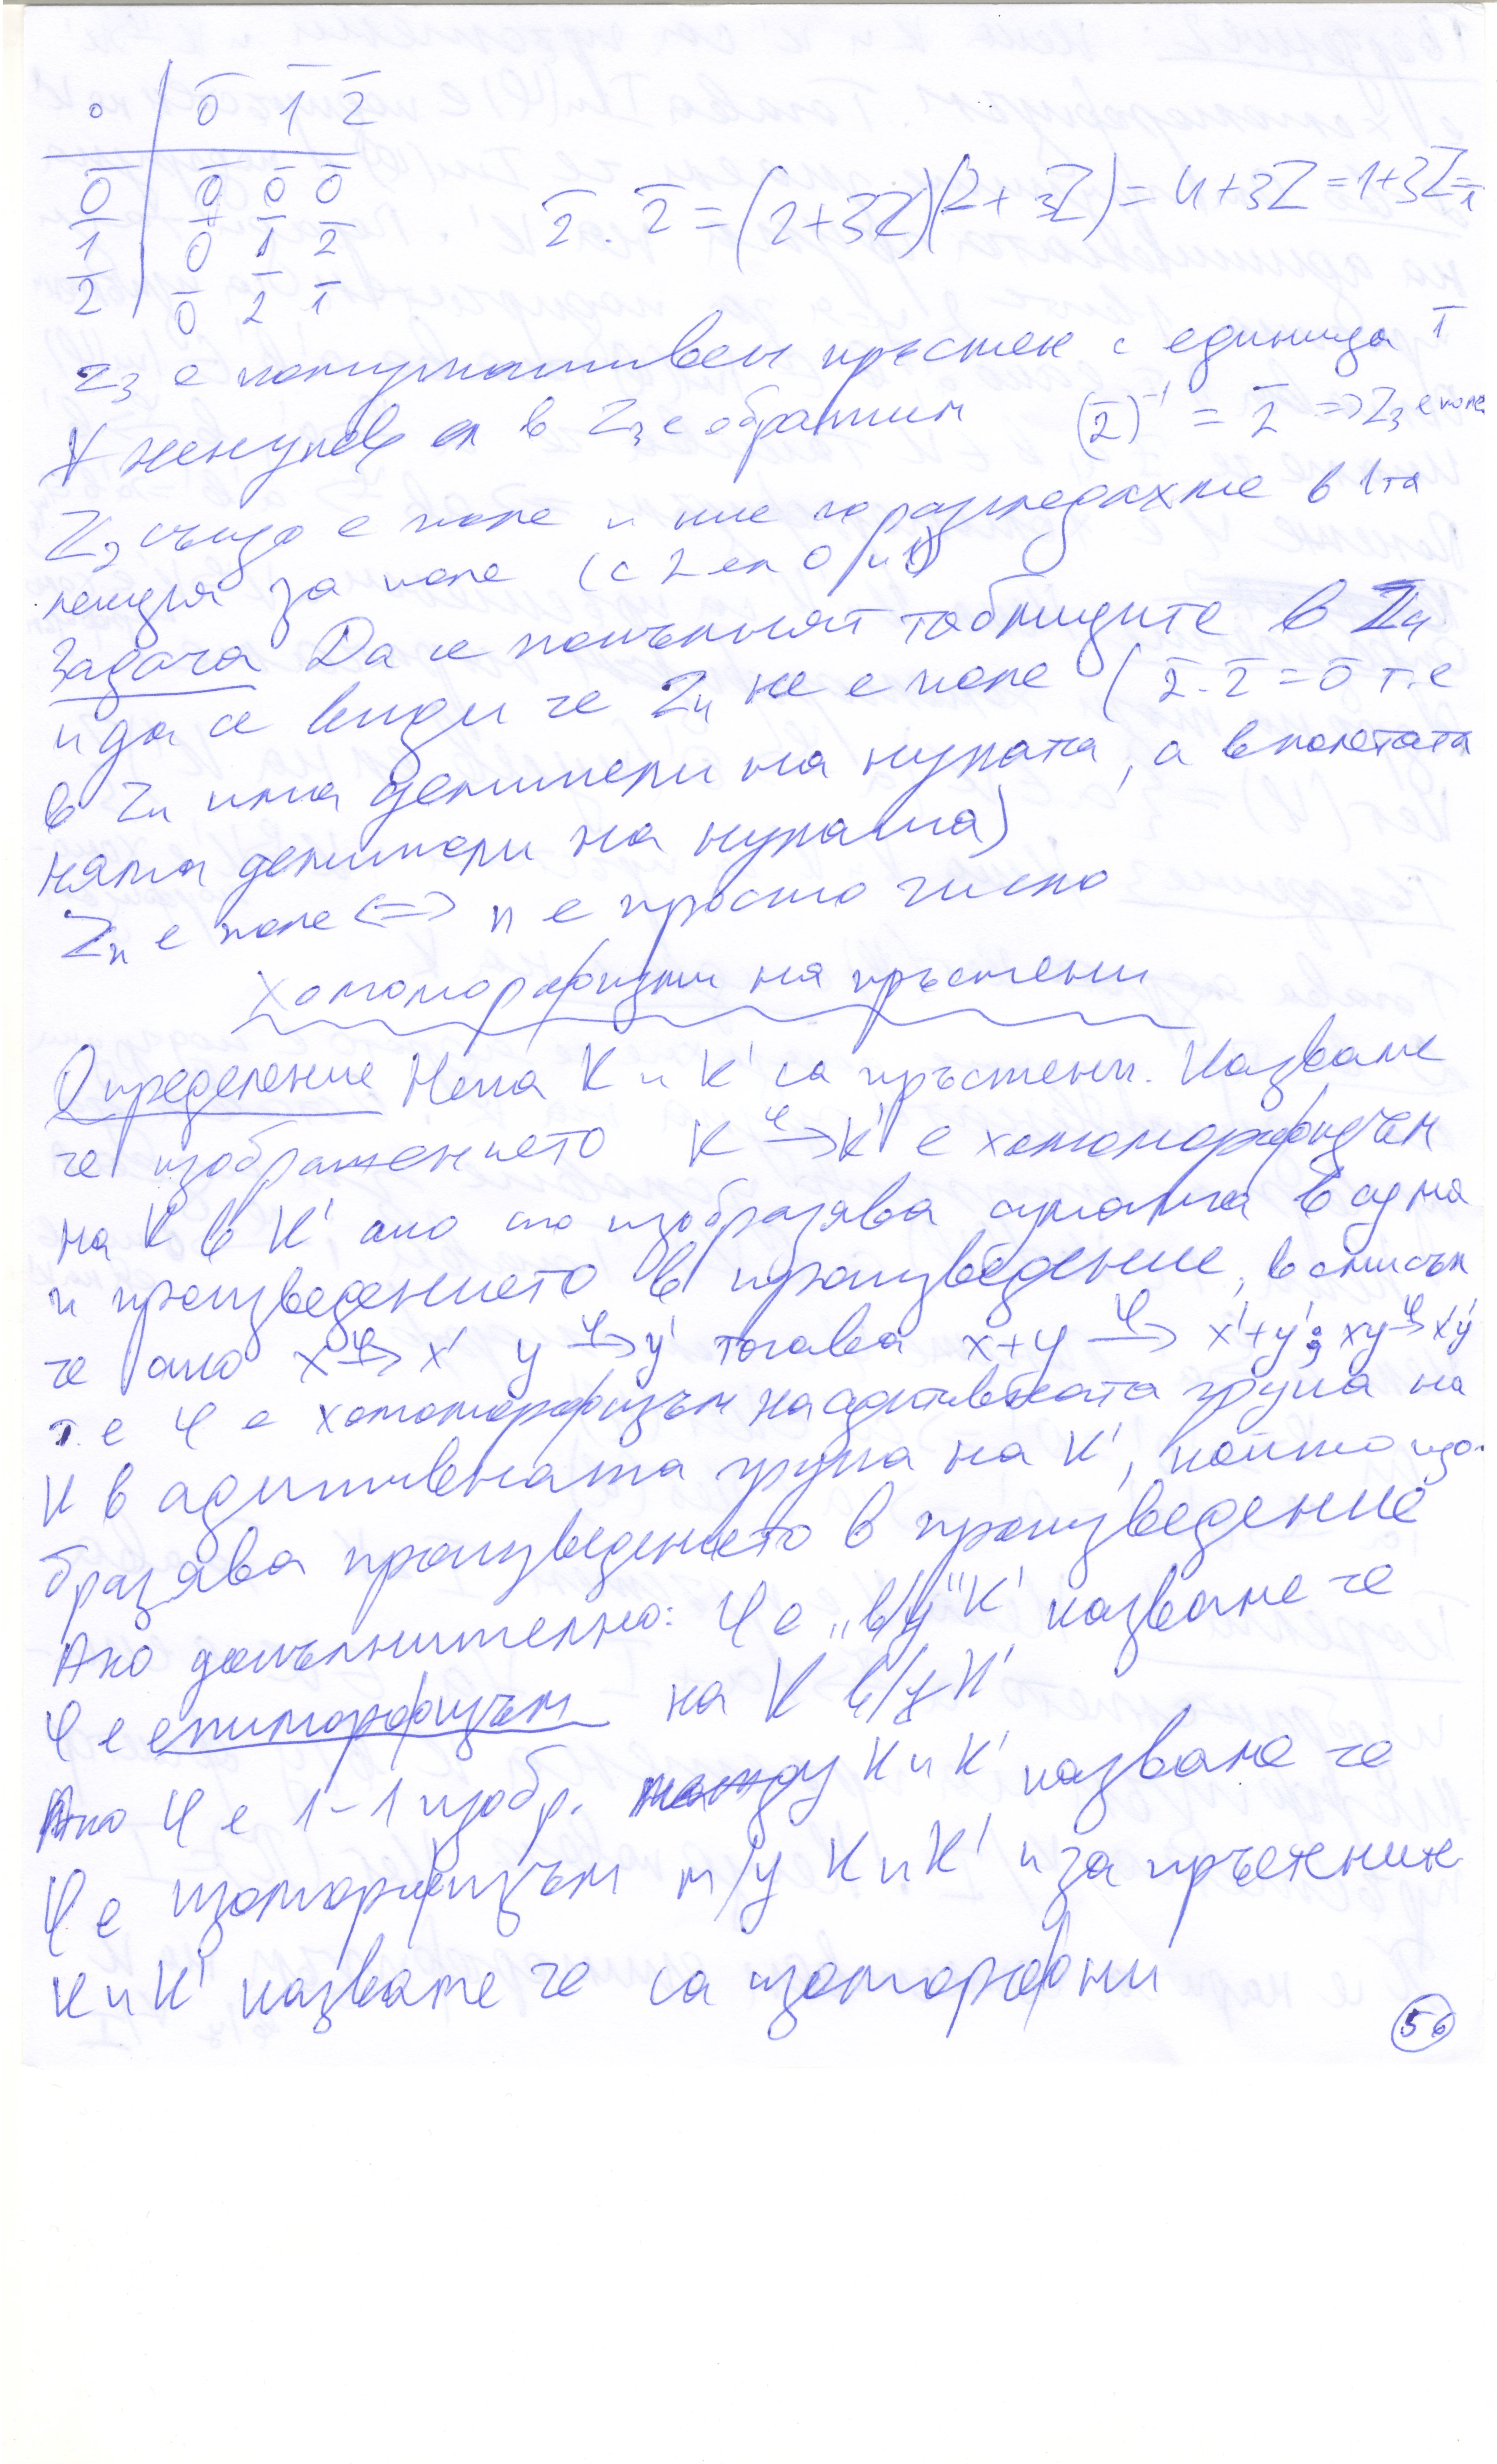 ∘ | 0̄ 1̄ 2̄
0̄ | 0̄ 0̄ 0̄
1̄ | 0̄ 1̄ 2̄
2̄ | 0̄ 2̄ 1̄
2̄ . 2̄ = (2+3Z)(2+3Z) = 4+3Z = 1+3Z = 1̄
Z₃ е комутативен пръстен с единица 1̄
∀ ненулев ел в Z₃ е обратим (2̄)⁻¹ = 2̄ => Z₃ е поле
Z₂ също е поле и ние го разгледахме в 1та
лекция за поле (с 2 ел 0 и 1)
Задача Да се попълнят таблиците в Z₄
и да се види че Z₄ не е поле (2̄.2̄=0̄ т.е
в Z₄ има делители на нулата, а в полетата
няма делители на нулата)
Zₙ е поле <=> n е просто число
Хомоморфизми на пръстени
Определение Нека K и K' са пръстени. Казваме
че изображението K →φ K' е хомоморфизъм
на K в K' ако то изобразява сумата в сума
и произведението в произведение, в смисъл
че ако x →φ x' y →φ y' тогава x+y →φ x'+y'; xy →φ x'y'
т.е φ е хомоморфизъм на адитивната група на
K в адитивната група на K', който изо-
бразява произведението в произведение
Ако допълнително: φ е „в/у" K' казваме че
φ е епиморфизъм на K в/у K'
Ако φ е 1-1 изобр. между K и K' казваме че
φ е изоморфизъм м/у K и K' и за пръстените
K и K' казваме че са изоморфни
56